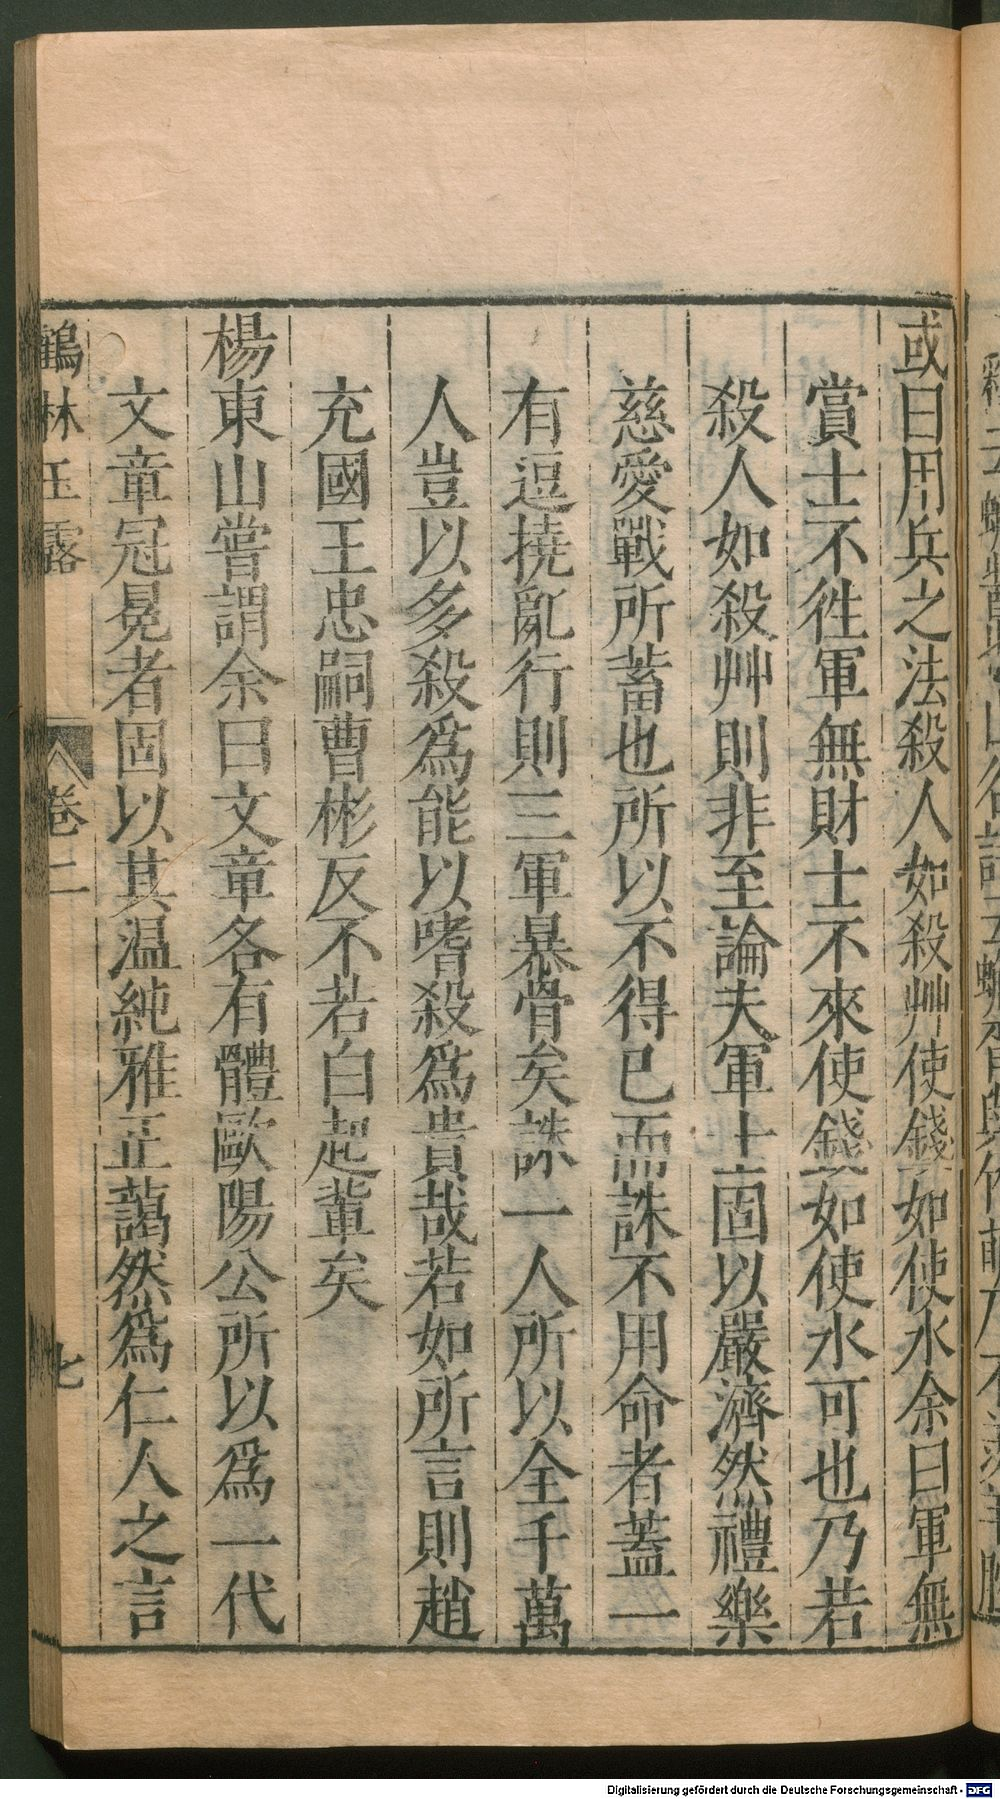 或曰用兵之法殺人如殺艸使錢如使水余曰軍無
賞士不徃軍無財士不來使錢如使水可也乃若
殺人如殺艸則非至論夫軍士固以嚴濟然禮樂
慈愛戰所蓄也所以不得已而誅不用命者蓋一
有逗撓亂行則三軍暴骨矣誅一人所以全千萬
人豈以多殺爲能以嗜殺爲貴哉若如所言則趙
充國王忠嗣曹彬反不若白起輩矣
楊東山嘗謂余曰文章各有體歐陽公所以爲一代
文章冠冕者固以其温純雅正藹然爲仁人之言
鶴林玉露 卷二 七
Digitalisierung gefördert durch die Deutsche Forschungsgemeinschaft - DFG